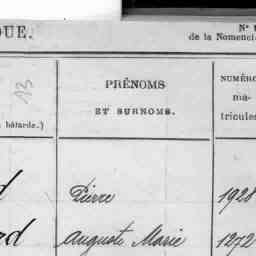 QUE.
N°
de la Nomencl
13
PRÉNOMS
ET SURNOMS.
NUMÉRO
ma-
tricules
bâtarde.)
d Pierre 1928
rd Auguste Marie 1272